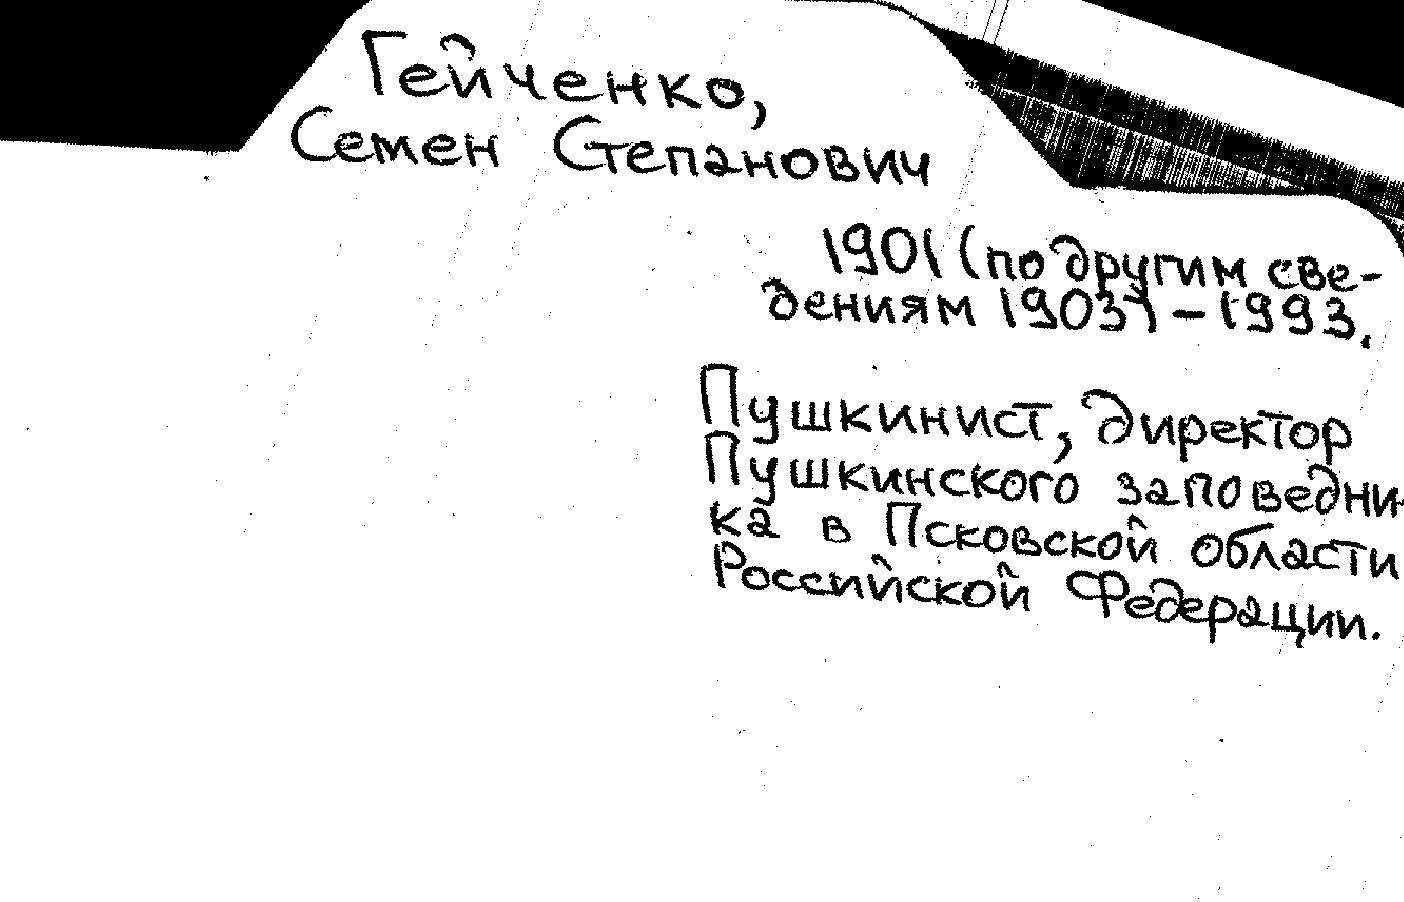 Гейченко,
Семен Степанович
1901 (по другим све-
дениям 1903) – 1993.
Пушкинист, директор
Пушкинского заповедни-
ка в Псковской области
Российской Федерации.